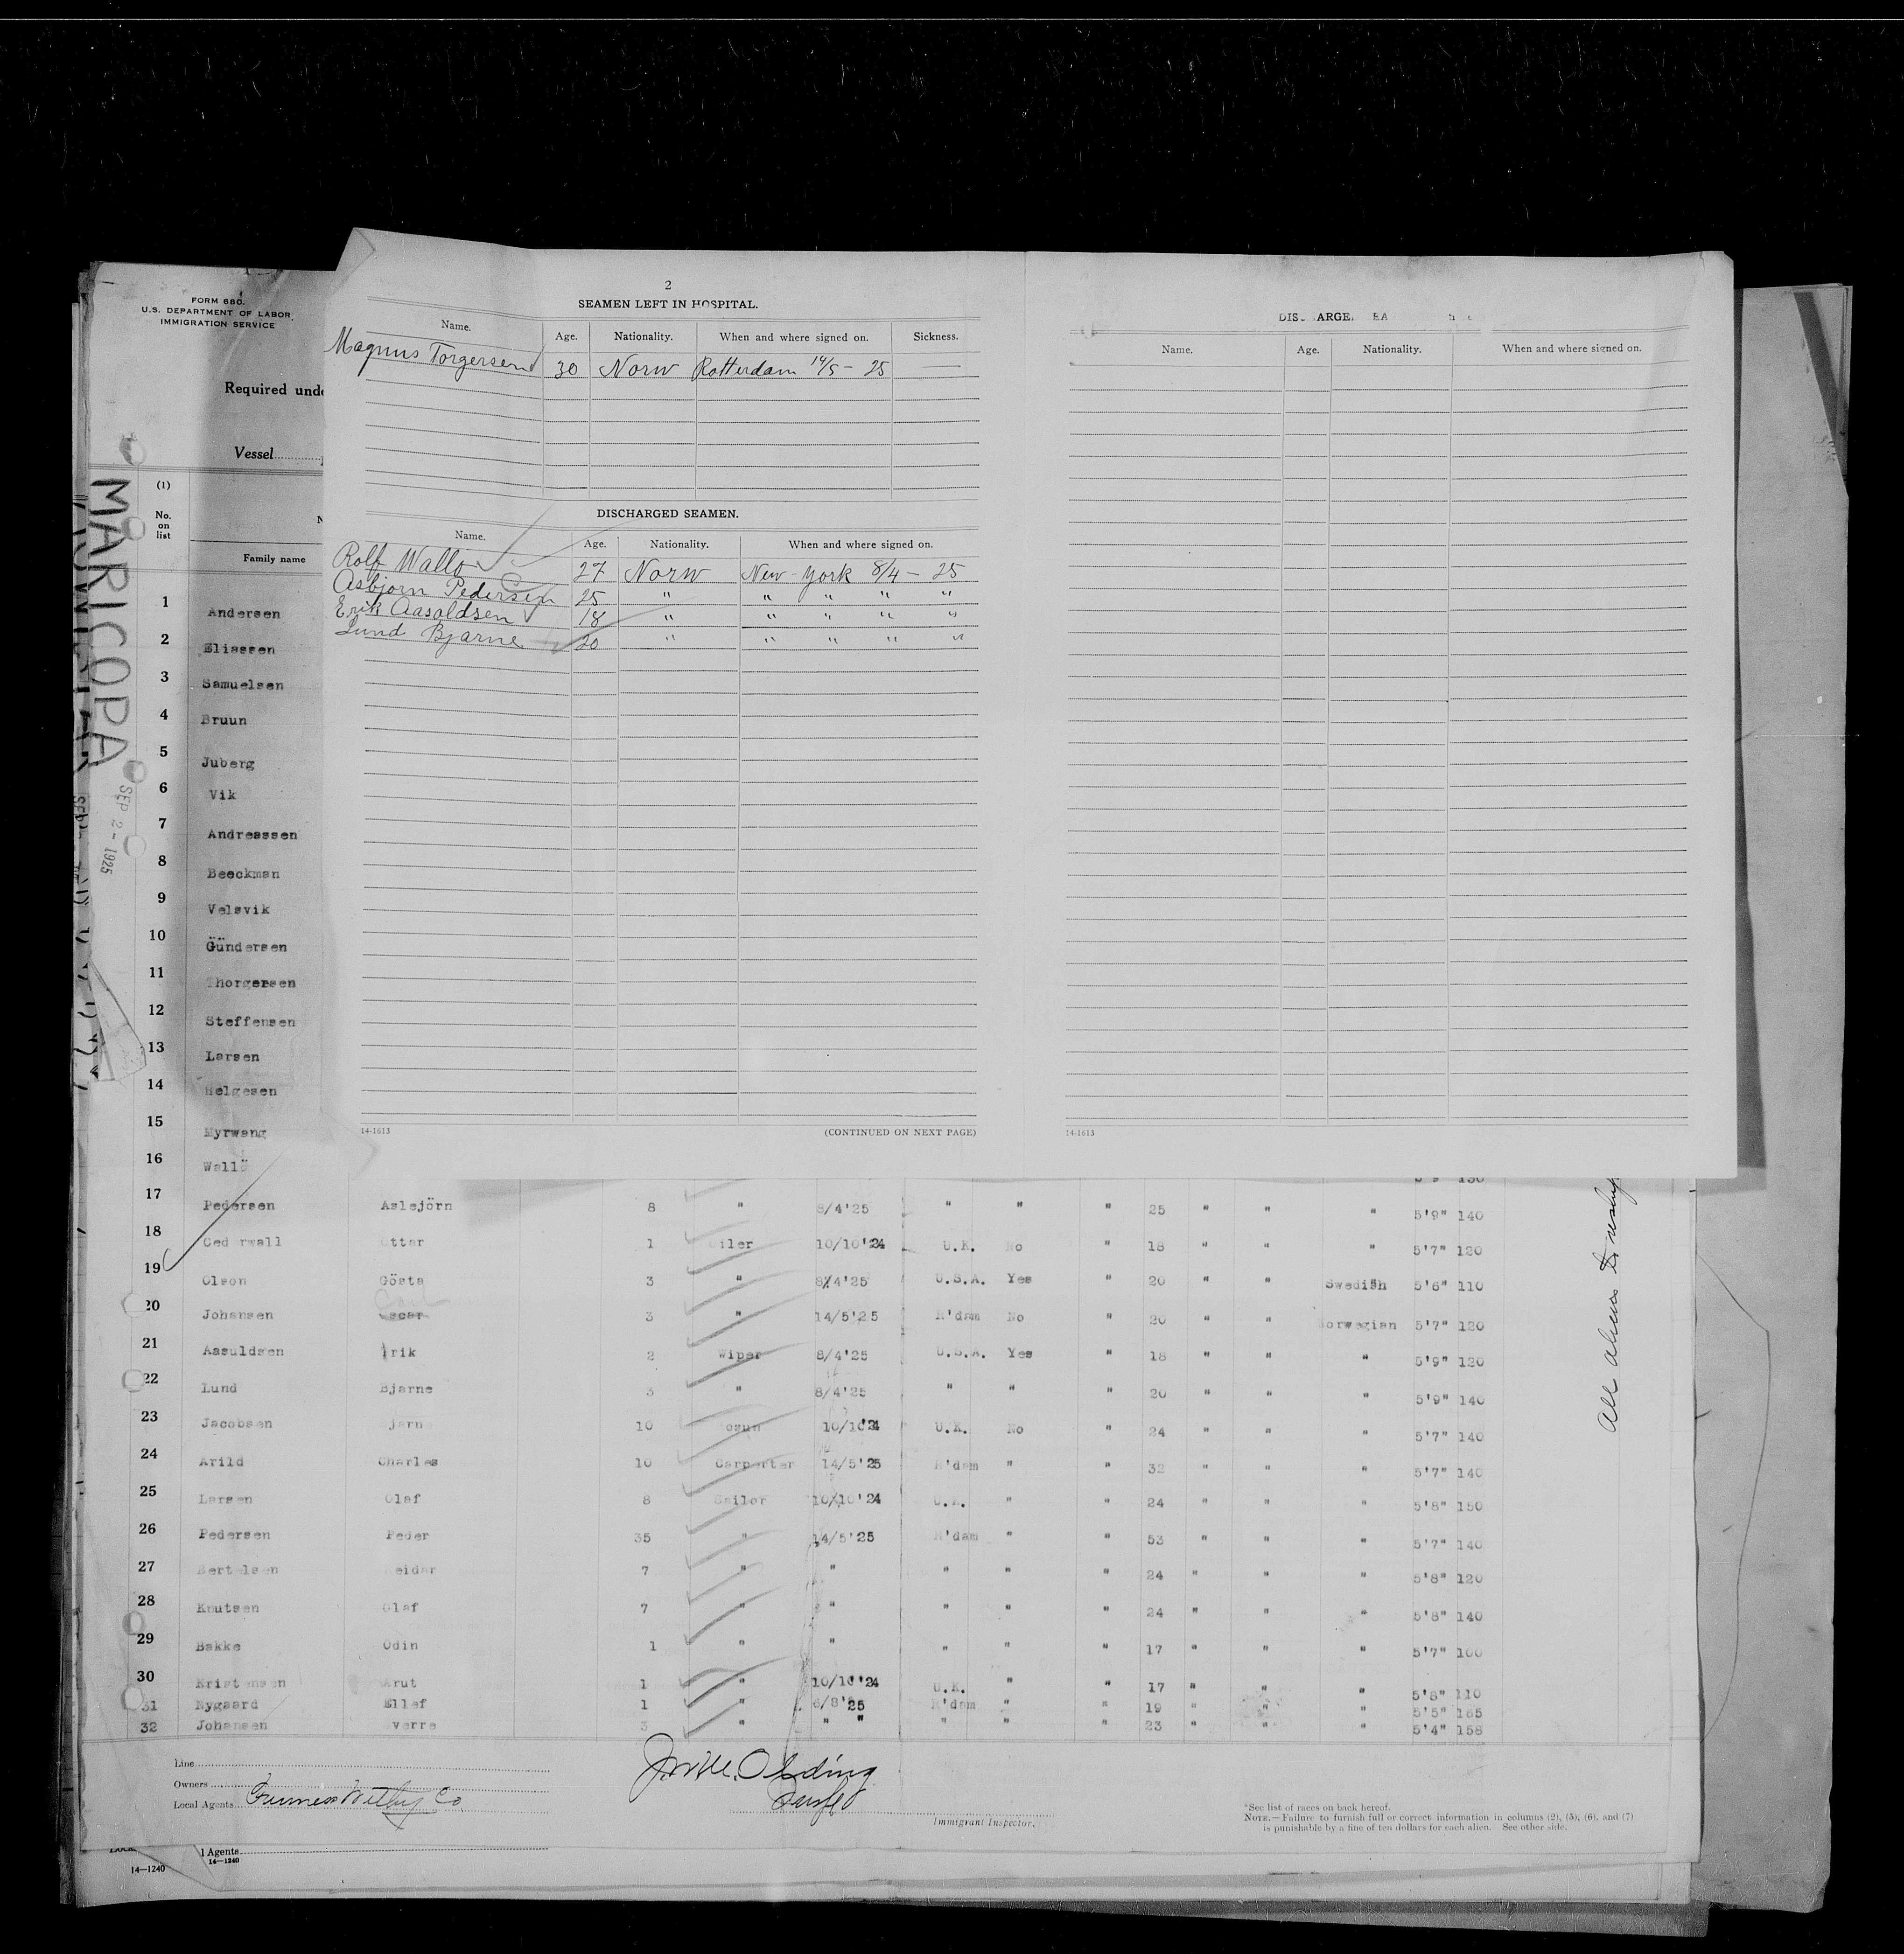 FORM 680.
U.S. DEPARTMENT OF LABOR
IMMIGRATION SERVICE
Required unde
Vessel
(1)
No. on list
Family name
MARICOPA
SEP 2 - 1925
2
SEAMEN LEFT IN HOSPITAL.
Name. Age. Nationality. When and where signed on. Sickness.
Magnus Torgersen 30 Norw Rotterdam 14/5 - 25 —
DISCHARGED SEAMEN.
Name. Age. Nationality. When and where signed on.
Rolf Wallo 27 Norw New-York 8/4 - 25
Asbjorn Pedersen 25 " " " " "
Erik Aasoldsen 18 " " " " "
Lund Bjarne 20 " " " " "
14-1613 (CONTINUED ON NEXT PAGE)
Name. Age. Nationality. When and where signed on.
14-1613
1 Andersen
2 Eliassen
3 Samuelsen
4 Bruun
5 Juberg
6 Vik
7 Andreassen
8 Beeckman
9 Velsvik
10 Gündersen
11 Thorgersen
12 Steffensen
13 Larsen
14 Helgesen
15 Myrwang
16 Wallö 5'9" 130
17 Pedersen Aslejörn 8 " 8/4'25 " " " 25 " " " 5'9" 140
18 Cederwall Ottar 1 Oiler 10/10'24 U.K. No " 18 " " " 5'7" 120
19 Olson Gösta 3 " 8/4'25 U.S.A. Yes " 20 " " Swedish 5'6" 110
20 Johansen Oscar Carl 3 " 14/5'25 R'dam No " 20 " " Norwegian 5'7" 120
21 Aasuldsen Erik 2 Wiper 8/4'25 U.S.A. Yes " 18 " " " 5'9" 120
22 Lund Bjarne 3 " 8/4'25 " " " 20 " " " 5'9" 140
23 Jacobsen Bjarne 10 Bosun 10/10'24 U.K. No " 24 " " " 5'7" 140
24 Arild Charles 10 Carpenter 14/5'25 R'dam " " 32 " " " 5'7" 140
25 Larsen Olaf 8 Sailor 10/10'24 U.K. " " 24 " " " 5'8" 150
26 Pedersen Peder 35 " 14/5'25 R'dam " " 53 " " " 5'7" 140
27 Bertelsen Reidar 7 " " " " " 24 " " " 5'8" 120
28 Knutsen Olaf 7 " " " " " 24 " " " 5'8" 140
29 Bakke Odin 1 " " " " " 17 " " " 5'7" 100
30 Kristensen 1 " 10/10'24 U.K. " " 17 " " " 5'8" 110
31 Nygaard Ellef 1 " 6/8'25 R'dam " " 19 " " " 5'5" 165
32 Johansen Sverre 3 " " " " " " 23 " " " 5'4" 158
All aliens
Line
Owners
Local Agents Furness Withy Co
Immigrant Inspector.
*See list of races on back hereof.
NOTE.—Failure to furnish full or correct information in columns (2), (5), (6), and (7)
is punishable by a fine of ten dollars for each alien. See other side.
l Agents
14—1240
14—1240